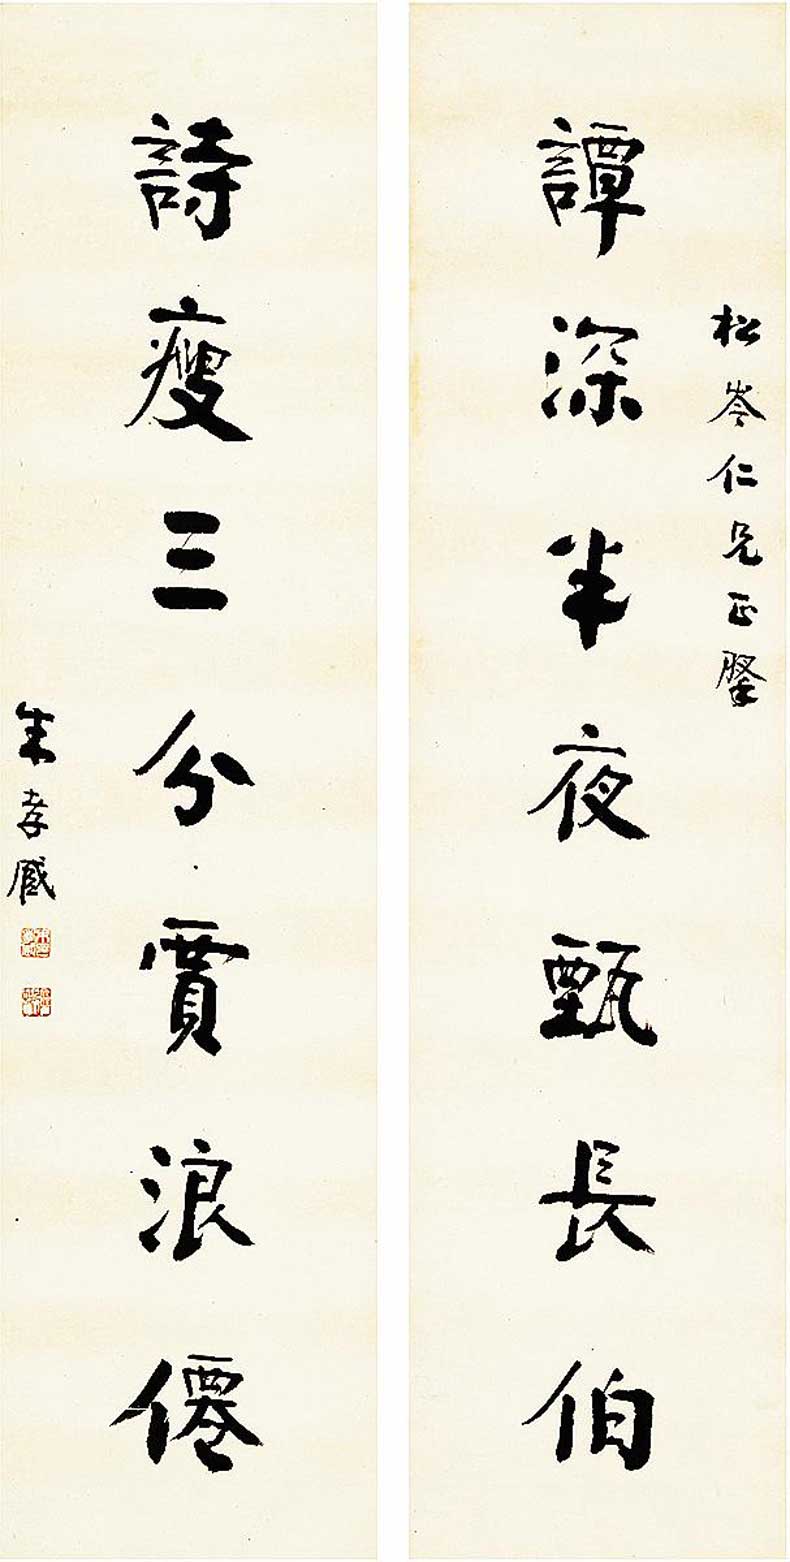 松岑仁兄正
譚深半夜甄長伯
詩瘦三分賈浪僊
朱孝臧